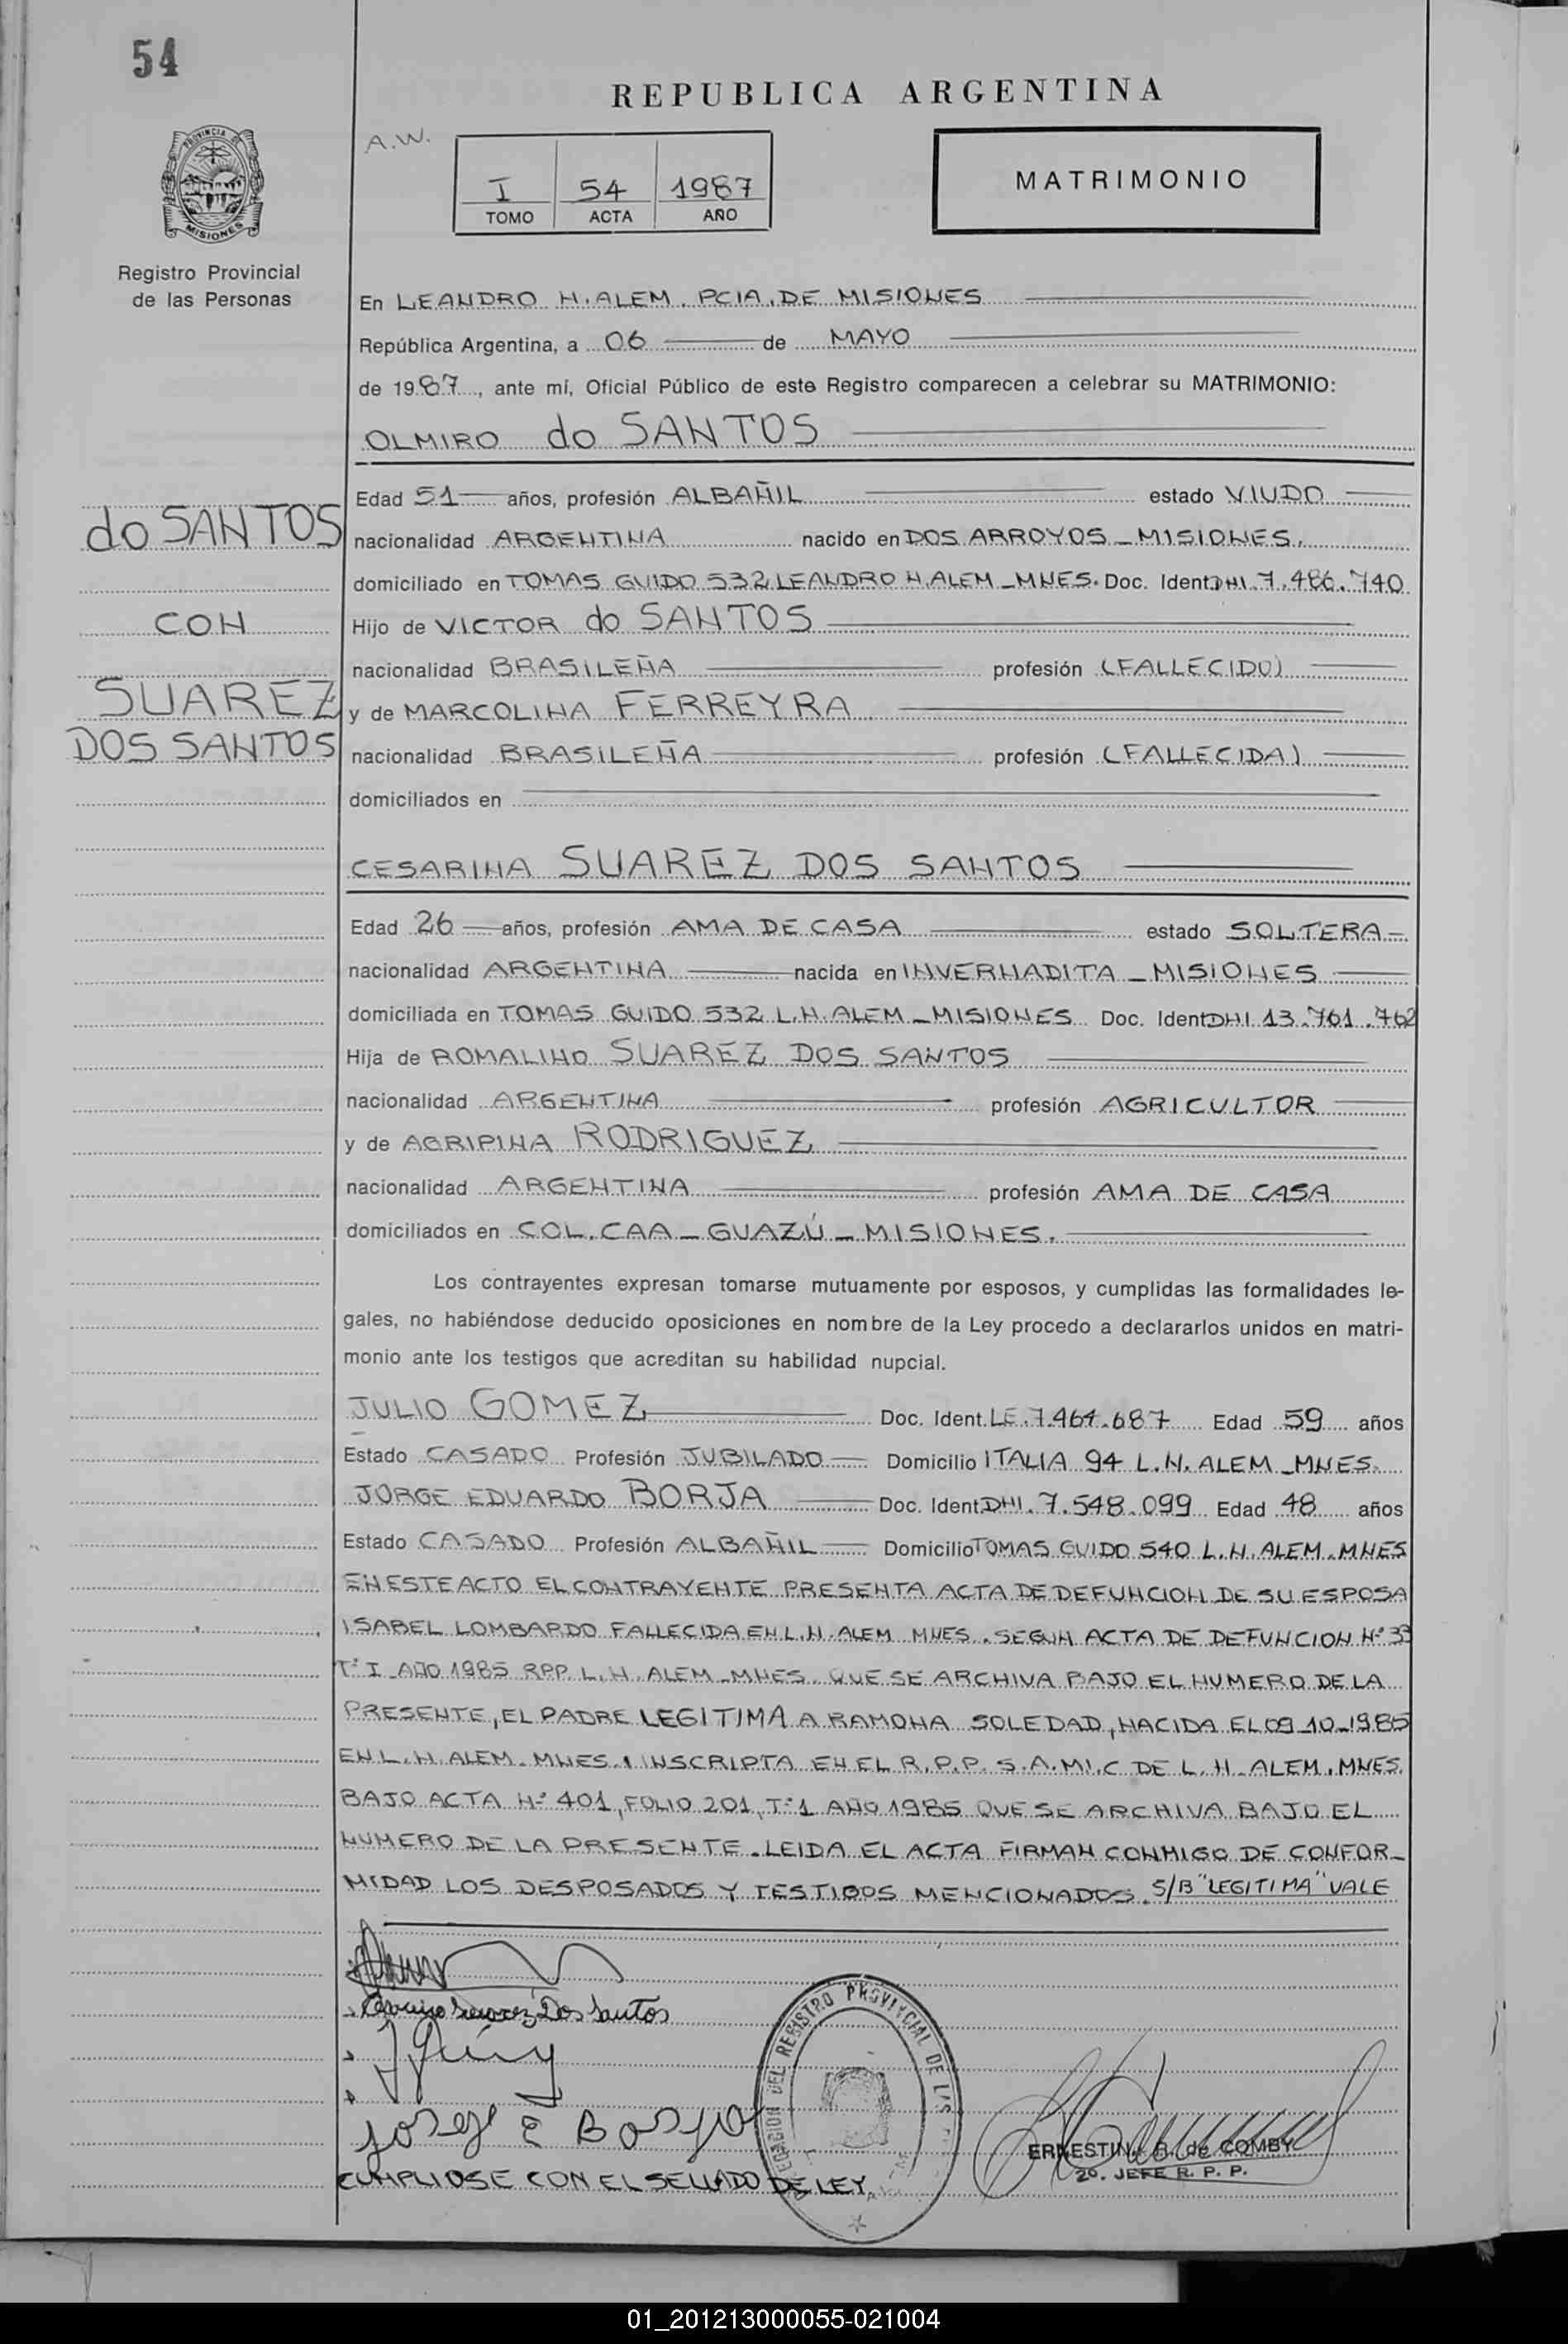 54
REPUBLICA ARGENTINA
A.W.
I 54 1987
TOMO ACTA AÑO
MATRIMONIO
PROVINCIA DE
MISIONES
Registro Provincial
de las Personas
En LEANDRO N. ALEM. PCIA. DE MISIONES
República Argentina, a 06 de MAYO
de 1987, ante mí, Oficial Público de este Registro comparecen a celebrar su MATRIMONIO:
OLMIRO do SANTOS
do SANTOS
CON
SUAREZ
DOS SANTOS
Edad 51 años, profesión ALBAÑIL estado VIUDO
nacionalidad ARGENTINA nacido en DOS ARROYOS - MISIONES.
domiciliado en TOMAS GUIDO 532 LEANDRO N. ALEM - MNES. Doc. Ident. DNI. 7.486.740
Hijo de VICTOR do SANTOS
nacionalidad BRASILEÑA profesión (FALLECIDO)
y de MARCOLINA FERREYRA
nacionalidad BRASILEÑA profesión (FALLECIDA)
domiciliados en
CESARINA SUAREZ DOS SANTOS
Edad 26 años, profesión AMA DE CASA estado SOLTERA
nacionalidad ARGENTINA nacida en INVERNADITA - MISIONES
domiciliada en TOMAS GUIDO 532 L.N. ALEM - MISIONES Doc. Ident. DNI 13.761.762
Hija de ROMALINO SUAREZ DOS SANTOS
nacionalidad ARGENTINA profesión AGRICULTOR
y de AGRIPINA RODRIGUEZ
nacionalidad ARGENTINA profesión AMA DE CASA
domiciliados en COL. CAA - GUAZÚ - MISIONES.
Los contrayentes expresan tomarse mutuamente por esposos, y cumplidas las formalidades le-
gales, no habiéndose deducido oposiciones en nombre de la Ley procedo a declararlos unidos en matri-
monio ante los testigos que acreditan su habilidad nupcial.
JULIO GOMEZ Doc. Ident. LE. 7.464.687 Edad 59 años
Estado CASADO Profesión JUBILADO Domicilio ITALIA 94 L.N. ALEM - MNES.
JORGE EDUARDO BORJA Doc. Ident. DNI. 7.548.099 Edad 48 años
Estado CASADO Profesión ALBAÑIL Domicilio TOMAS GUIDO 540 L.N. ALEM. MNES
EN ESTE ACTO EL CONTRAYENTE PRESENTA ACTA DE DEFUNCION DE SU ESPOSA
ISABEL LOMBARDO FALLECIDA EN L.N. ALEM MNES. SEGUN ACTA DE DEFUNCION Nº 33
Tº I AÑO 1985 RPP. L.N. ALEM - MNES. QUE SE ARCHIVA BAJO EL NUMERO DE LA
PRESENTE, EL PADRE LEGITIMA A RAMONA SOLEDAD, NACIDA EL 09-10-1985
EN L.N. ALEM. MNES. INSCRIPTA EN EL R.P.P. S.A.MI.C DE L.N. ALEM. MNES.
BAJO ACTA Nº 401, FOLIO 201, Tº 1 AÑO 1985 QUE SE ARCHIVA BAJO EL
NUMERO DE LA PRESENTE. LEIDA EL ACTA FIRMAN CONMIGO DE CONFOR-
MIDAD LOS DESPOSADOS Y TESTIGOS MENCIONADOS. S/B "LEGITIMA" VALE
Suarez Dos Santos
Jorge E Borja
DELEGACION DEL REGISTRO PROVINCIAL DE LAS
ERNESTINA R. de COMBY
2º. JEFE R. P. P.
CUMPLIOSE CON EL SELLADO DE LEY
01_201213000055-021004